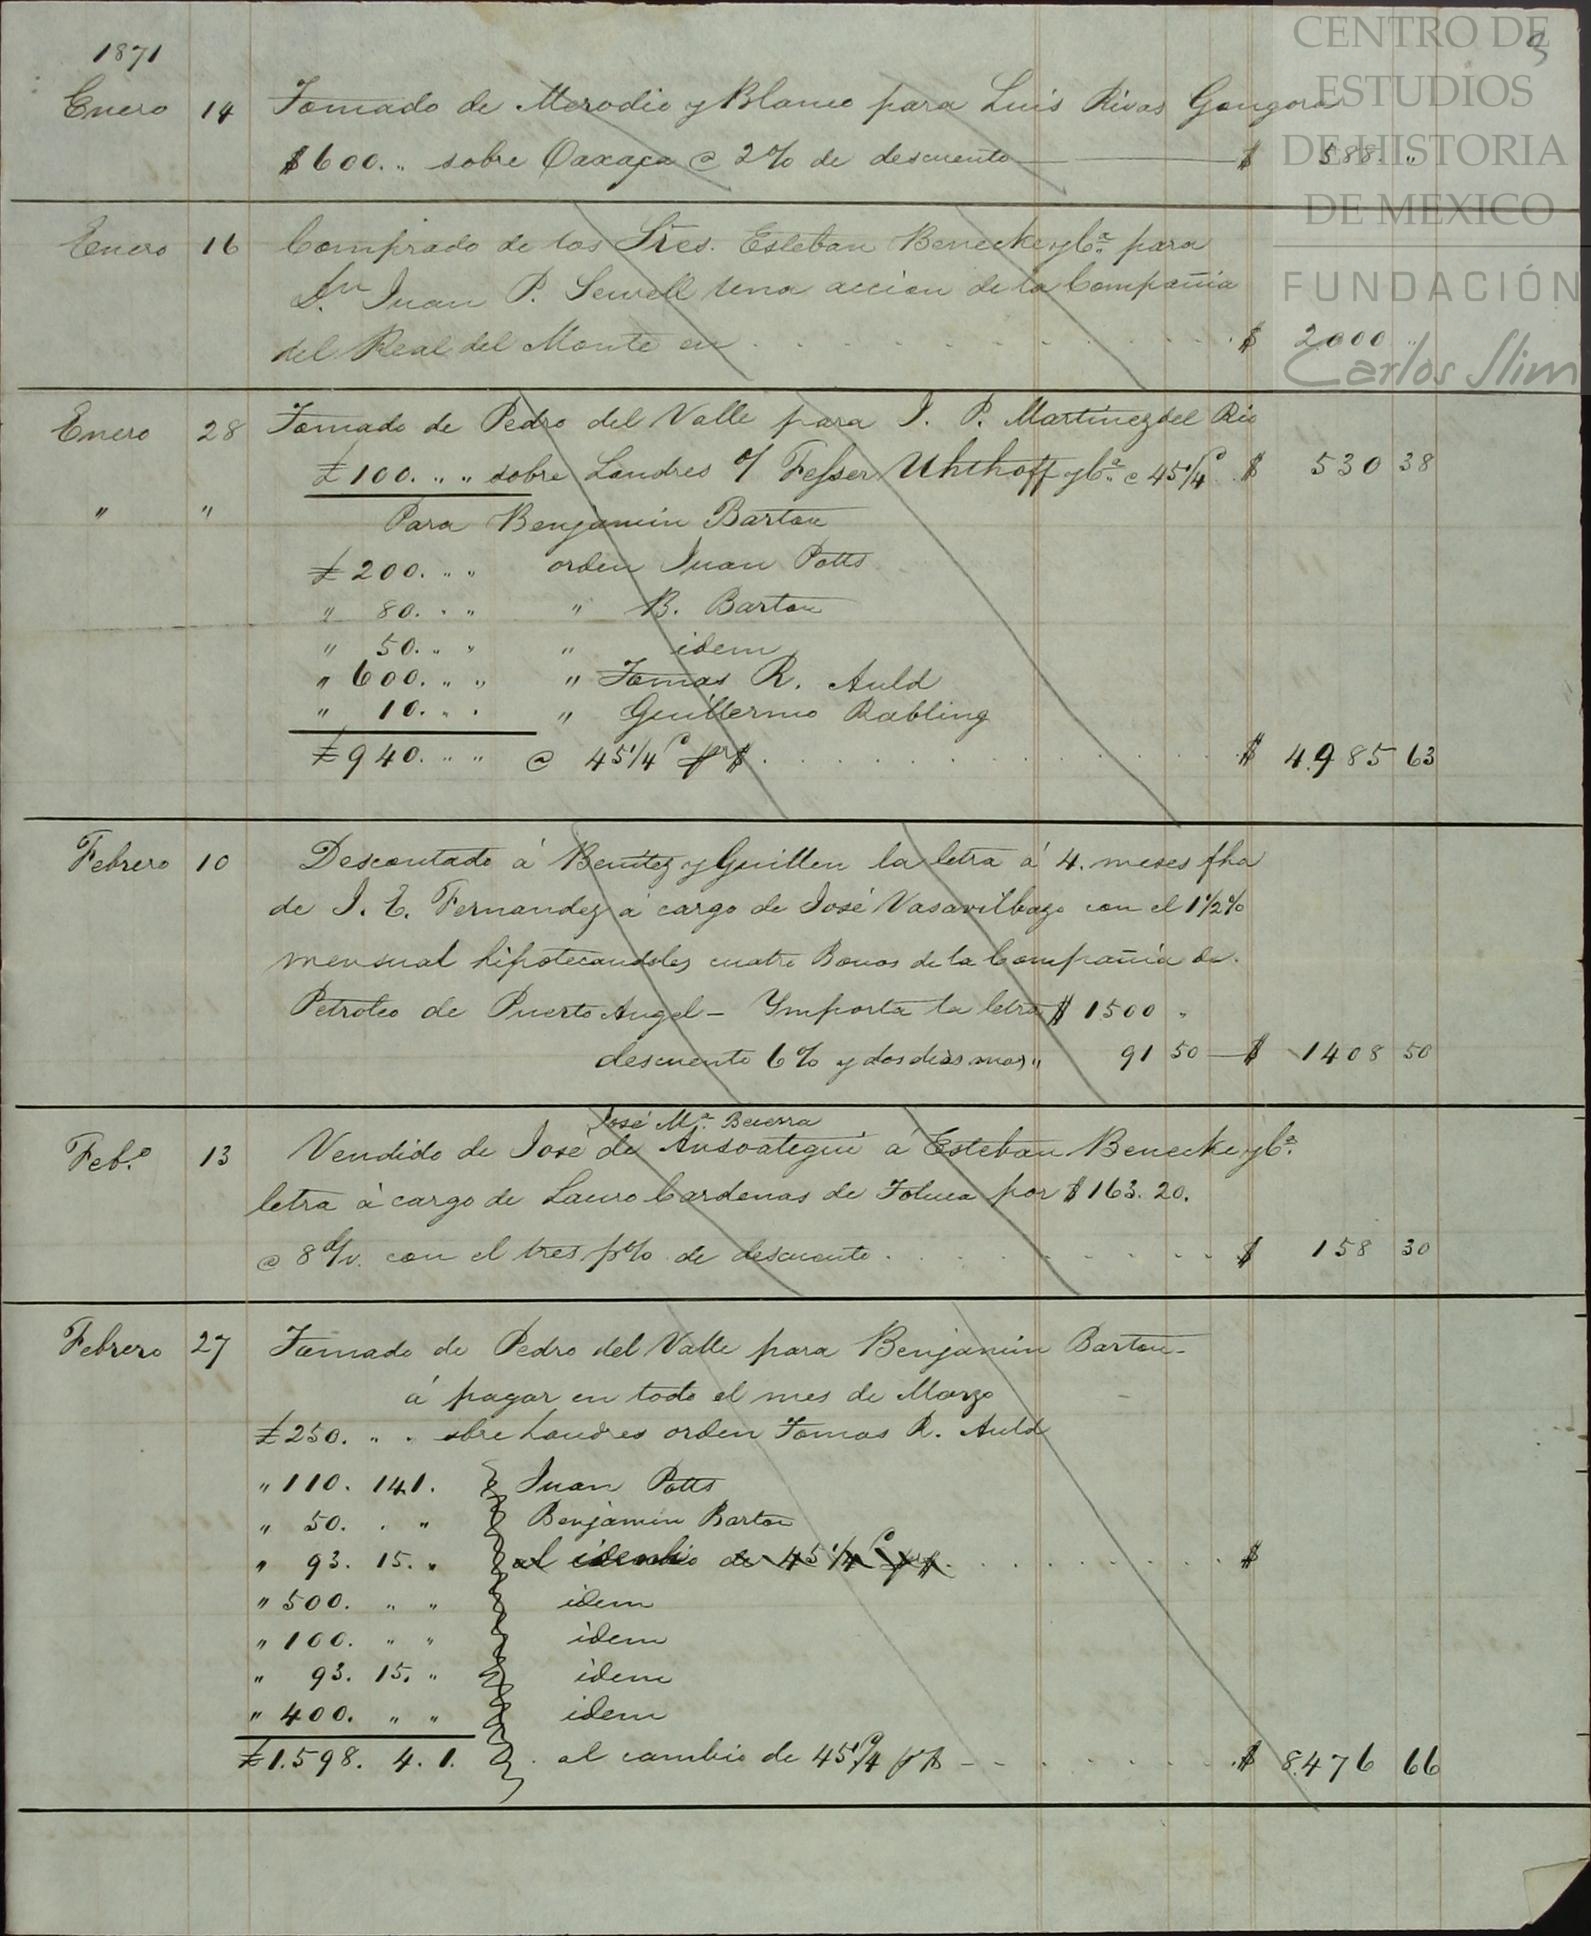 CENTRO DE
ESTUDIOS
DE HISTORIA
DE MEXICO
FUNDACIÓN
Carlos Slim
1871
Enero 14 Tomado de Merodio y Blanco para Luis Rivas Gongora
$600. „ sobre Oaxaca @ 2% de descuento $ 588. „
Enero 16 Comprado de los Sres. Esteban Benecke y Ca. para
Dn Juan P. Sewell una accion de la Compañia
del Real del Monte en . . . . . $ 2.000 „
Enero 28 Tomado de Pedro del Valle para J. P. Martinez del Rio
£ 100. „ „ sobre Londres o/ Fesser Uhthoff y Ca. @ 45 1/4 $ 530 38
„ „ Para Benjamin Barton
£ 200. „ „ orden Juan Potts
„ 80. „ „ „ B. Barton
„ 50. „ „ „ idem
„ 600. „ „ „ Tomas R. Auld
„ 10. „ „ „ Guillermo Rabling
£ 940. „ „ @ 45 1/4 pr $ . . . . . $ 4.985 63
Febrero 10 Descontado á Benitez y Guillen la letra á 4. meses fha
de J. E. Fernandez á cargo de José Vasavilbazo con el 1 1/2 %
mensual hipotecandoles cuatro Bonos de la Compañia de
Petroleo de Puerto Angel - Ymporta la letra $ 1500 „
descuento 6% y dos dias mas „ 91 50 — $ 1408 50
José Ma. Becerra
Feb.o 13 Vendido de José de Ansoategui á Esteban Benecke y Ca.
letra á cargo de Lauro Cardenas de Toluca por $ 163. 20.
@ 8 d/v. con el tres p% de descuento . . . . . $ 158 30
Febrero 27 Tomado de Pedro del Valle para Benjamin Barton -
á pagar en todo el mes de Marzo
£ 250. „ „ sbre Londres orden Tomas R. Auld
„ 110. 14.1. Juan Potts
„ 50. „ „ Benjamin Barton
„ 93. 15. „ idem de 45 1/4 pr $ . . . . . $
„ 500. „ „ idem
„ 100. „ „ idem
„ 93. 15. „ idem
„ 400. „ „ idem
£ 1.598. 4. 1. al cambio de 45 1/4 pr $ - - . . . . . $ 8.476 66